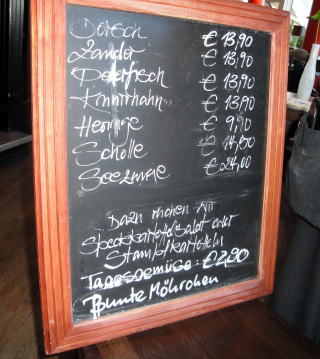 Dorsch € 13,90
Zander € 13,90
Peterfisch € 13,90
Knurrhahn € 13,90
Heringe € 9,90
Scholle € 14,90
Seezunge € 24,00
Dazu reichen wir
Speckkartoffelsalat oder
Stampfkartoffeln
Tagesgemüse: €2,90
Bunte Möhrchen